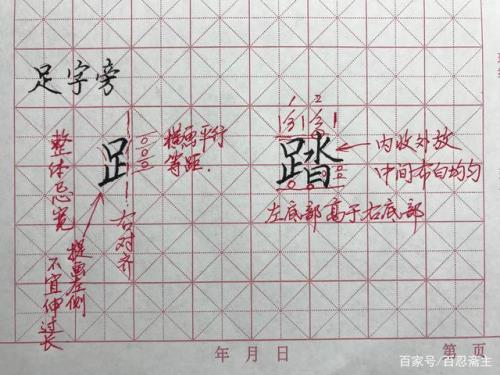 足字旁
整体忌宽
𧾷
横画平行
等距.
右对齐
提画左侧
不宜伸过长
1 2
踏
内收外放
中间布白均匀
左底部高于右底部
年 月 日
第 页
百家号/百忍斋主